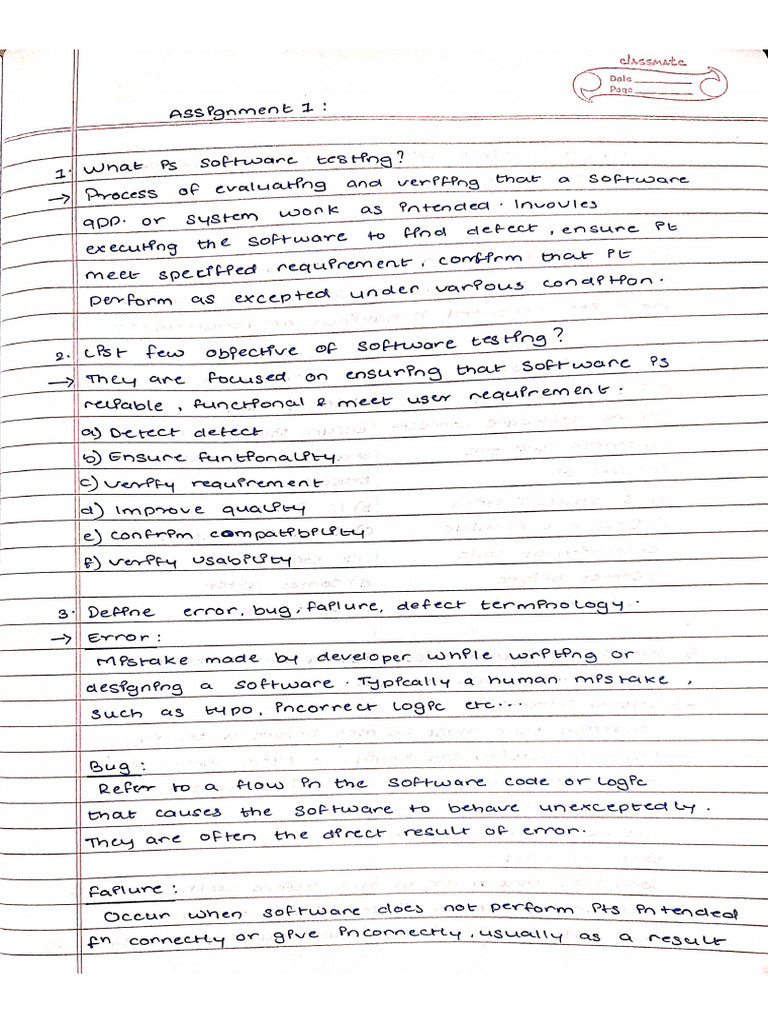 classmate
Date
Page
Assignment 1 :
1. What is software testing?
→ Process of evaluating and verifiing that a software
app. or system work as intended. Invovles
executing the software to find defect, ensure it
meet specified requirement, confirm that it
perform as excepted under various condition.
2. List few objective of software testing?
→ They are focused on ensuring that software is
reliable, functional & meet user requirement.
a) Detect defect
b) Ensure funtionality
c) verify requirement
d) Improve quality
e) confrim compatibility
f) verify usability
3. Define error, bug, failure, defect terminology.
→ Error :
Mistake made by developer while writing or
designing a software. Typically a human mistake,
such as typo, incorrect logic etc...
Bug :
Refer to a flow in the software code or logic
that causes the software to behave unexceptedly.
They are often the direct result of error.
Failure :
Occur when software does not perform its intended
fn correctly or give incorrectly, usually as a result